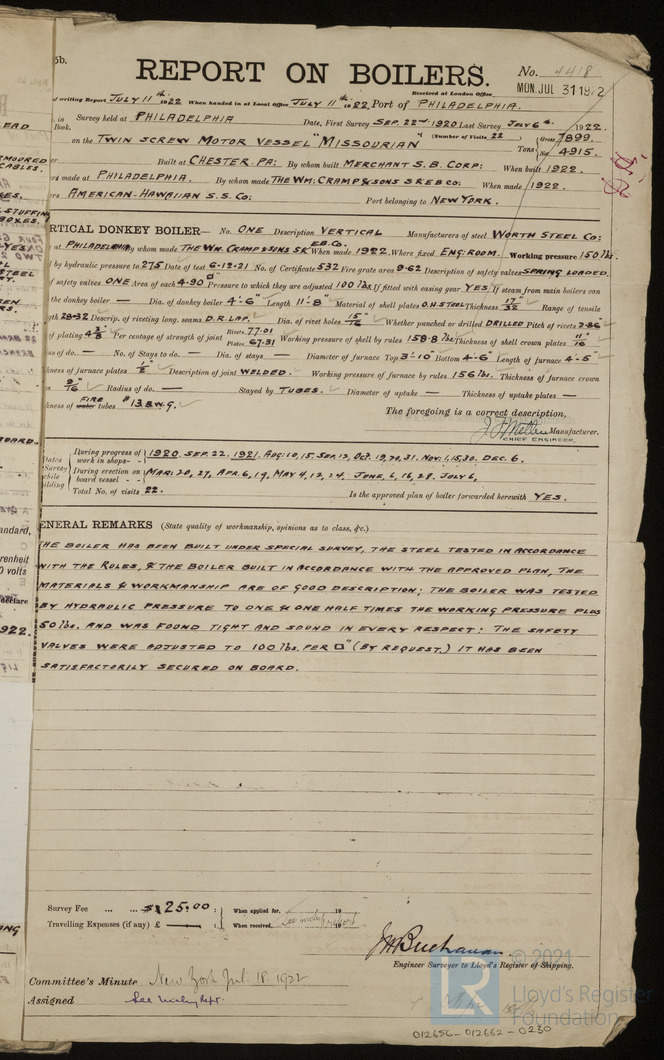 5b.
REPORT ON BOILERS.
No. 4418
Received at London Office
MON. JUL 31 1922
of writing Report JULY 11th 1922 When handed in at Local Office JULY 11th 1922. Port of PHILADELPHIA.
in Survey held at PHILADELPHIA Date, First Survey SEP. 22nd 1920 Last Survey JULY 6th 1922.
Book.
(Number of Visits 22)
on the TWIN SCREW MOTOR VESSEL "MISSOURIAN" Tons { Gross 7899. Net 4915.
Built at CHESTER. PA: By whom built MERCHANT S. B. CORP: When built 1922.
made at PHILADELPHIA. By whom made THE WM: CRAMP & SONS S & E B CO: When made 1922.
AMERICAN-HAWAIIAN S. S. CO: Port belonging to NEW YORK.
RTICAL DONKEY BOILER— No. ONE Description VERTICAL Manufacturers of steel WORTH STEEL CO:
at PHILADELPHIA By whom made THE WM. CRAMP & SONS S & E B. Co. When made 1922. Where fixed ENG: ROOM. Working pressure 150 lbs.
by hydraulic pressure to 275 Date of test 6-12-21 No. of Certificate 532 Fire grate area 9·62 Description of safety valves SPRING LOADED.
of safety valves ONE Area of each 4·90 □" Pressure to which they are adjusted 100 lbs. If fitted with easing gear YES. If steam from main boilers can
the donkey boiler — Dia. of donkey boiler 4'-6" Length 11'-8" Material of shell plates O.H. STEEL Thickness 17/32 Range of tensile
gth 28-32 Descrip. of riveting long. seams D.R. LAP. Dia. of rivet holes 15/16 Whether punched or drilled DRILLED Pitch of rivets 2·86"
of plating 4 3/8 Per centage of strength of joint Rivets 77·01 Plates 67·31 Working pressure of shell by rules 158·8 lbs. Thickness of shell crown plates 11/16
us of do. — No. of Stays to do. — Dia. of stays — Diameter of furnace Top 3'-10" Bottom 4'-6" Length of furnace 4'-5"
kness of furnace plates 1/2" Description of joint WELDED. Working pressure of furnace by rules 156 lbs. Thickness of furnace crown
9/16 Radius of do. — Stayed by TUBES. Diameter of uptake — Thickness of uptake plates —
kness of water FIRE tubes # 13 B.W.G.
The foregoing is a correct description,
Manufacturer.
CHIEF ENGINEER.
Dates Survey while building
During progress of work in shops - - 1920. SEP. 22. 1921. AUG: 10, 15, SEP. 13, OCT. 19, 20, 31. NOV: 1, 15, 30. DEC. 6.
During erection on board vessel - - MAR: 20, 27, APR. 6, 19, MAY 4, 12, 24. JUNE, 6, 16, 28. JULY 6,
Total No. of visits 22. Is the approved plan of boiler forwarded herewith YES.
ENERAL REMARKS (State quality of workmanship, opinions as to class, &c.)
THE BOILER HAS BEEN BUILT UNDER SPECIAL SURVEY, THE STEEL TESTED IN ACCORDANCE
WITH THE RULES, & THE BOILER BUILT IN ACCORDANCE WITH THE APPROVED PLAN, THE
MATERIALS & WORKMANSHIP ARE OF GOOD DESCRIPTION; THE BOILER WAS TESTED
BY HYDRAULIC PRESSURE TO ONE & ONE HALF TIMES THE WORKING PRESSURE PLUS
50 lbs. AND WAS FOUND TIGHT AND SOUND IN EVERY RESPECT: THE SAFETY
VALVES WERE ADJUSTED TO 100 lbs. PER □" (BY REQUEST.) IT HAS BEEN
SATISFACTORILY SECURED ON BOARD.
Survey Fee ... ... $ 25.00 : When applied for, 19
Travelling Expenses (if any) £ — : When received, 19
J H Buchanan.
Engineer Surveyor to Lloyd's Register of Shipping.
Committee's Minute New York Jul. 18. 1922
Assigned See Mchy Rept.
© 2021
LR
Lloyd's Register
Foundation
012656-012662-0230